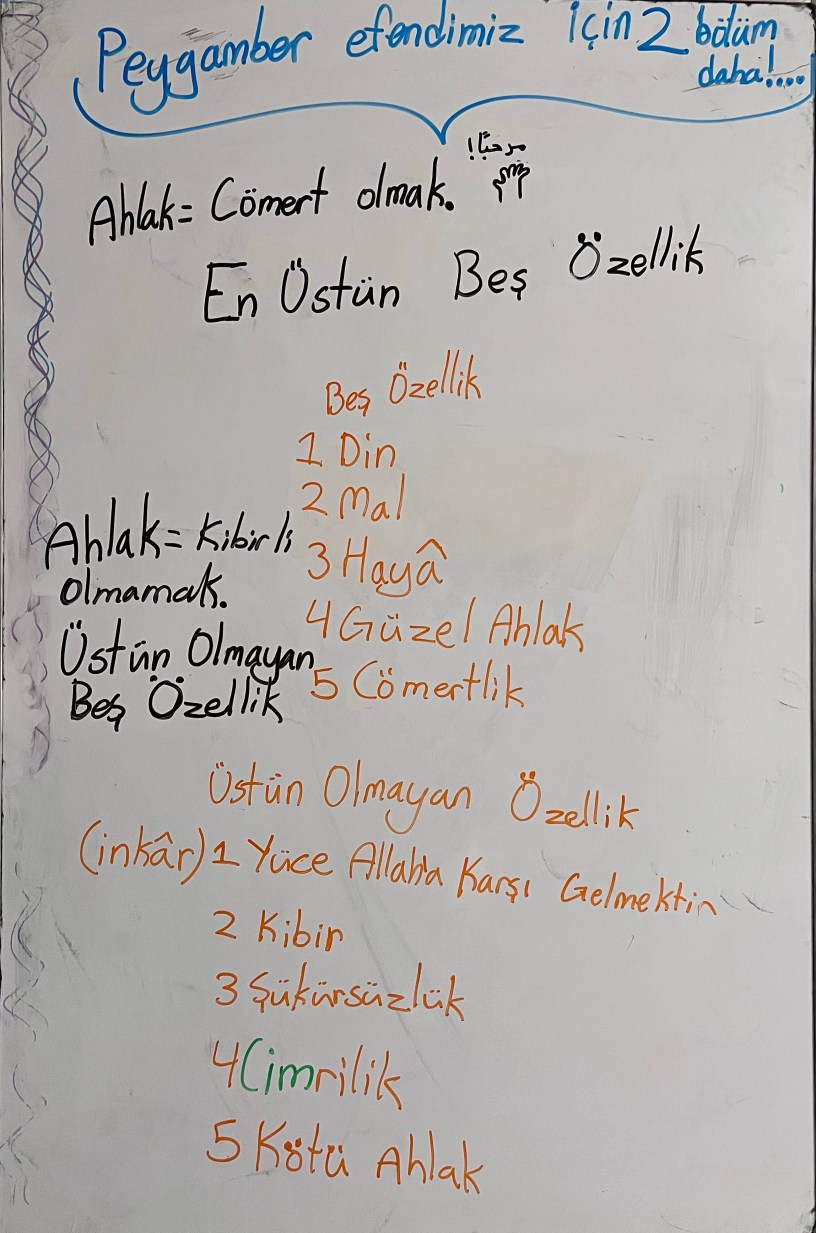 Peygamber efendimiz için 2 bölüm
daha!....
مرحبًا!
Ahlak= Cömert olmak.
En Üstün Beş Özellik
Beş Özellik
1 Din
2 Mal
3 Hayâ
4 Güzel Ahlak
5 Cömertlik
Ahlak= Kibirli
olmamak.
Üstün Olmayan
Beş Özellik
Üstün Olmayan Özellik
(inkâr) 1 Yüce Allah'a Karşı Gelmektin
2 Kibir
3 Şükürsüzlük
4 Cimrilik
5 Kötü Ahlak